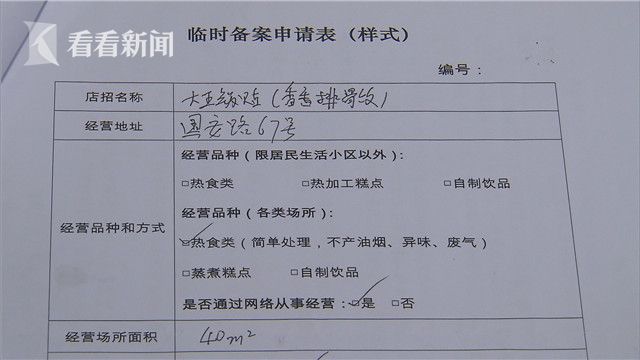 看看新闻
临时备案申请表（样式）
编号：
店招名称 大王锅贴（香香排骨饭）
经营地址 国安路67号
经营品种（限居民生活小区以外）：
□热食类 □热加工糕点 □自制饮品
经营品种和方式
经营品种（各类场所）：
□热食类（简单处理，不产油烟、异味、废气）
□蒸煮糕点 □自制饮品
是否通过网络从事经营：□是 □否
经营场所面积 40m²